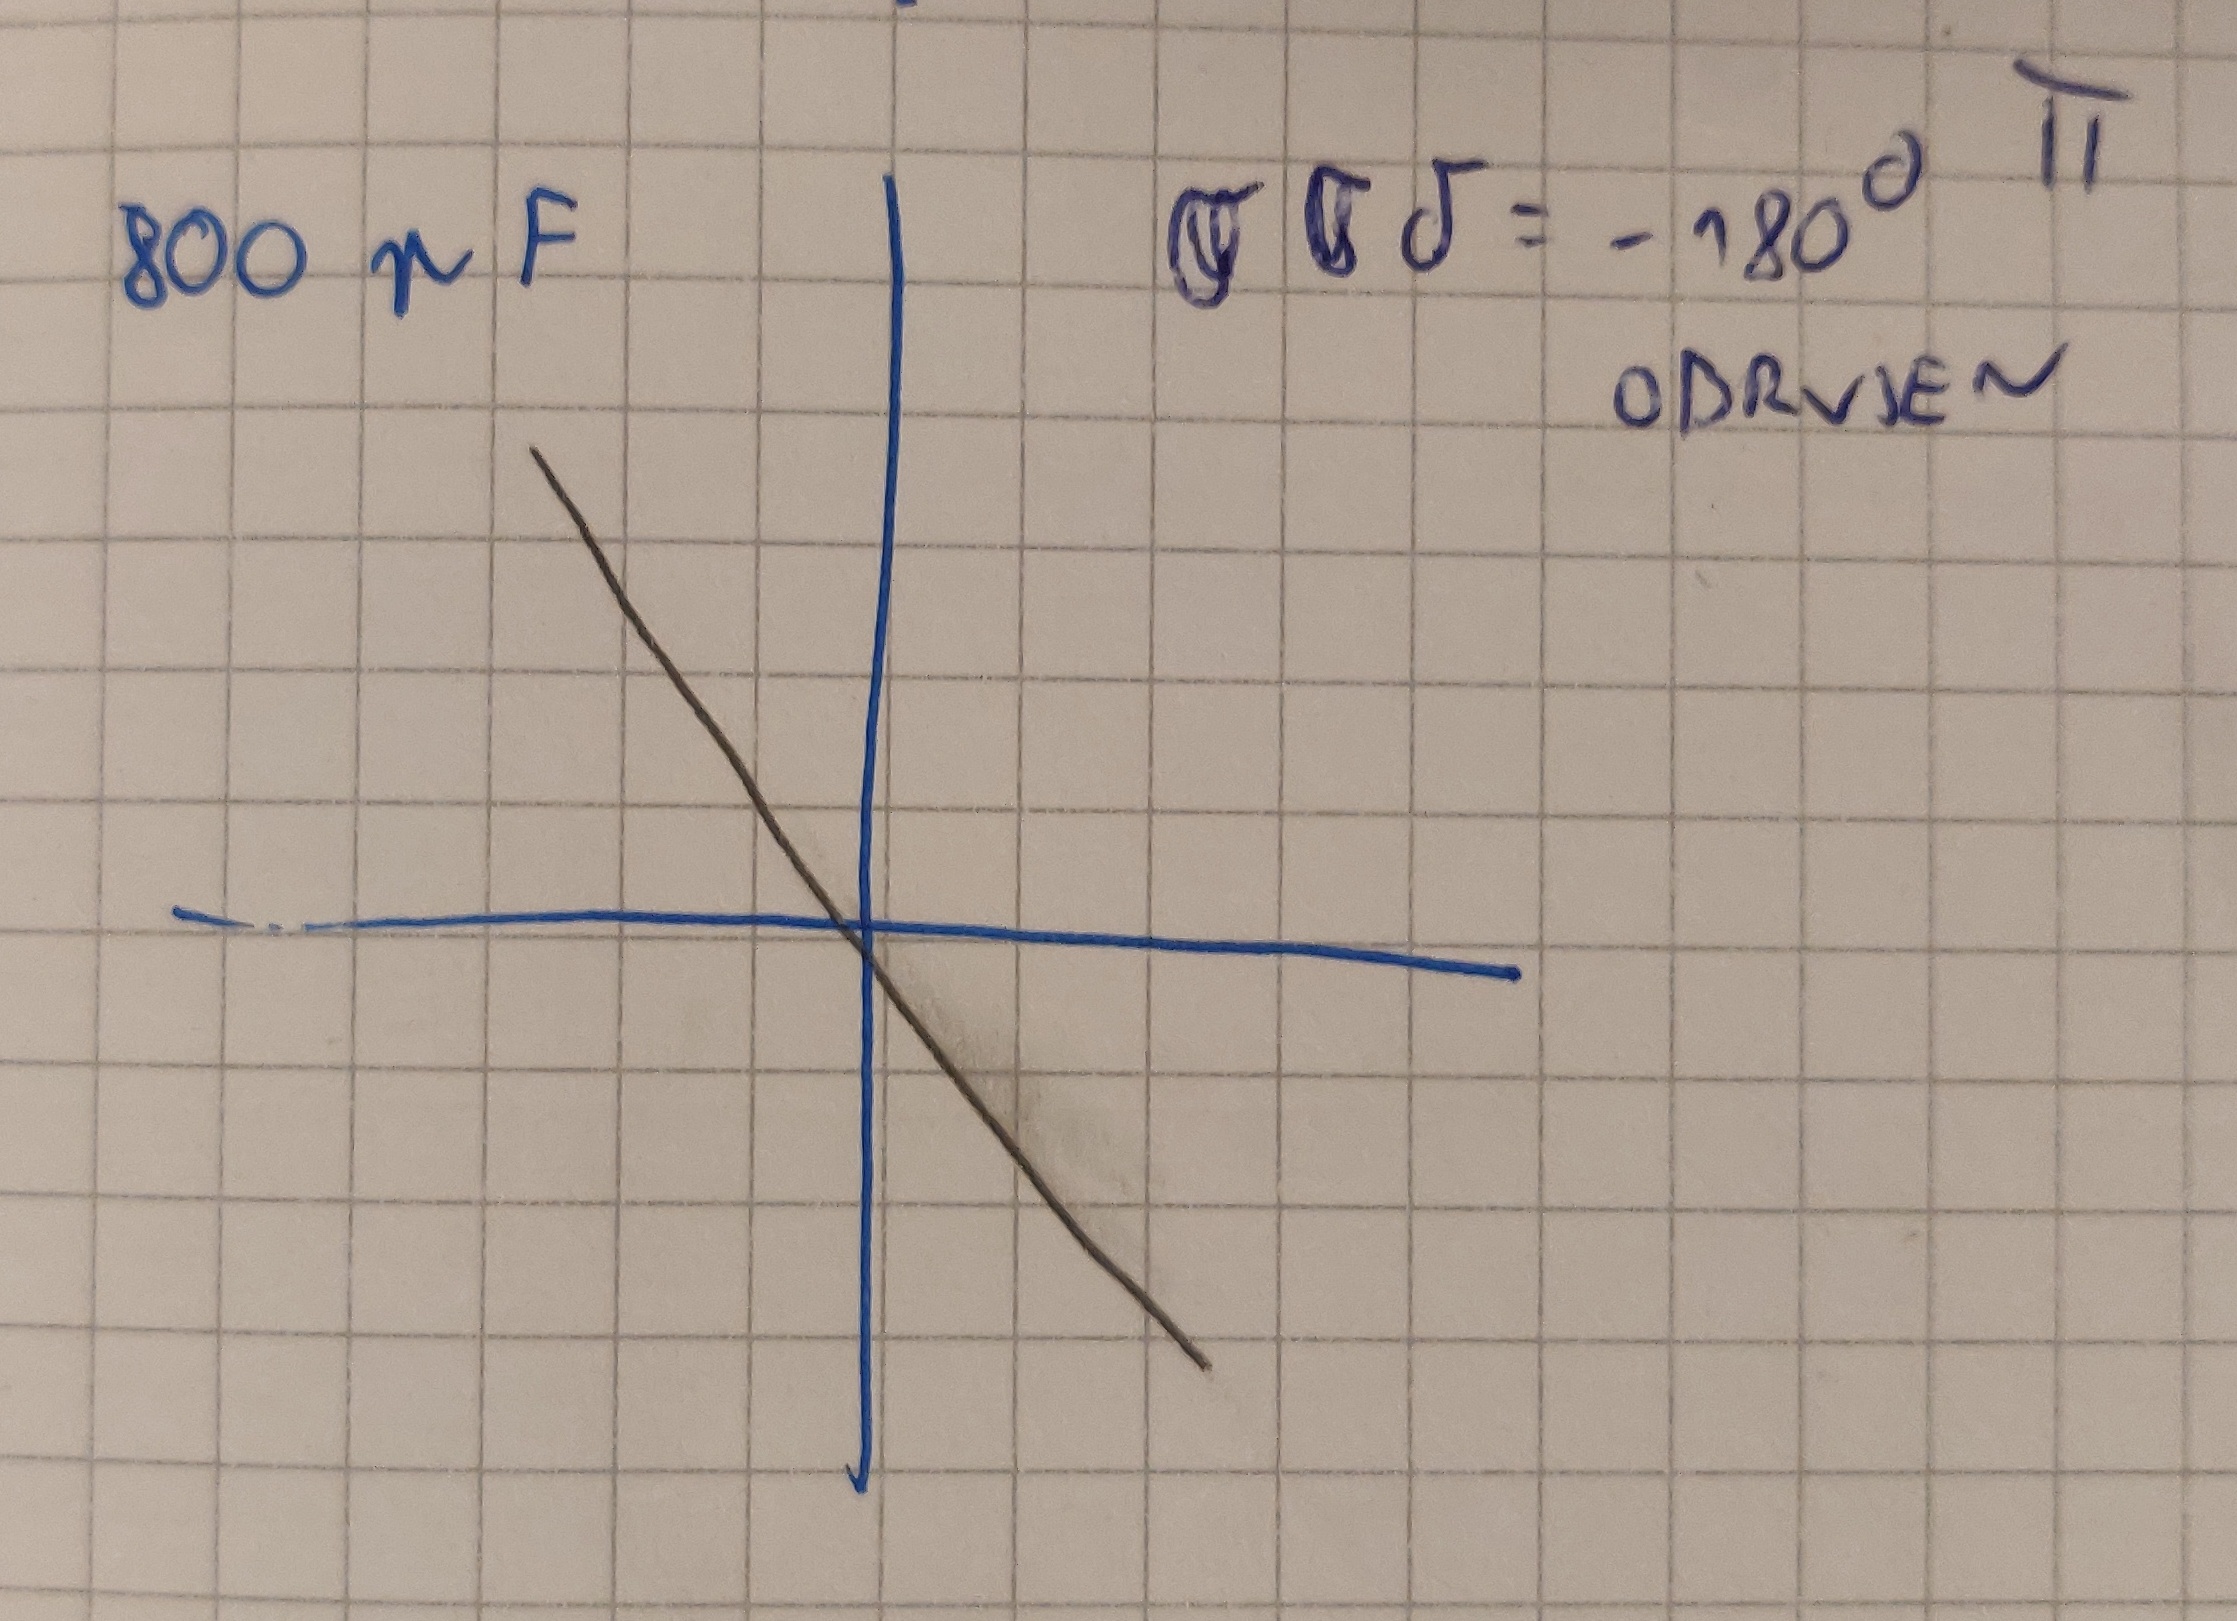 800 μF
δ = -180° π
ODRVJEN